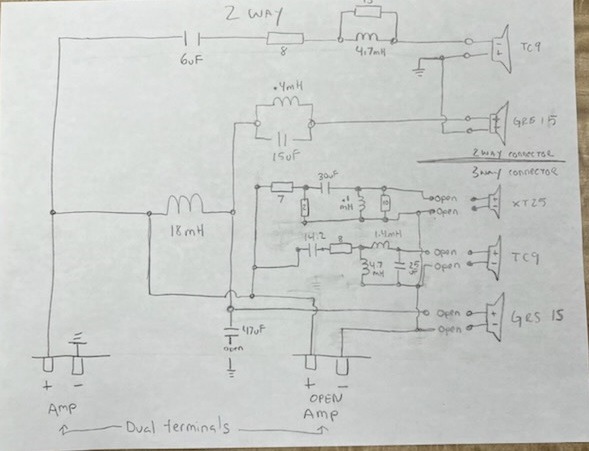 2 WAY
15
6uF
8
4.7mH
- +
TC9
.4mH
15uF
GRS 15
2WAY CONNECTOR
3WAY CONNECTOR
30uF
7
.1
mH
10
open
open
XT25
14.2
8
1.4mH
4.7
mH
25
open
open
TC9
18mH
open
open
+ -
GRS 15
47uF
open
+ -
+ -
AMP
OPEN
AMP
Dual terminals